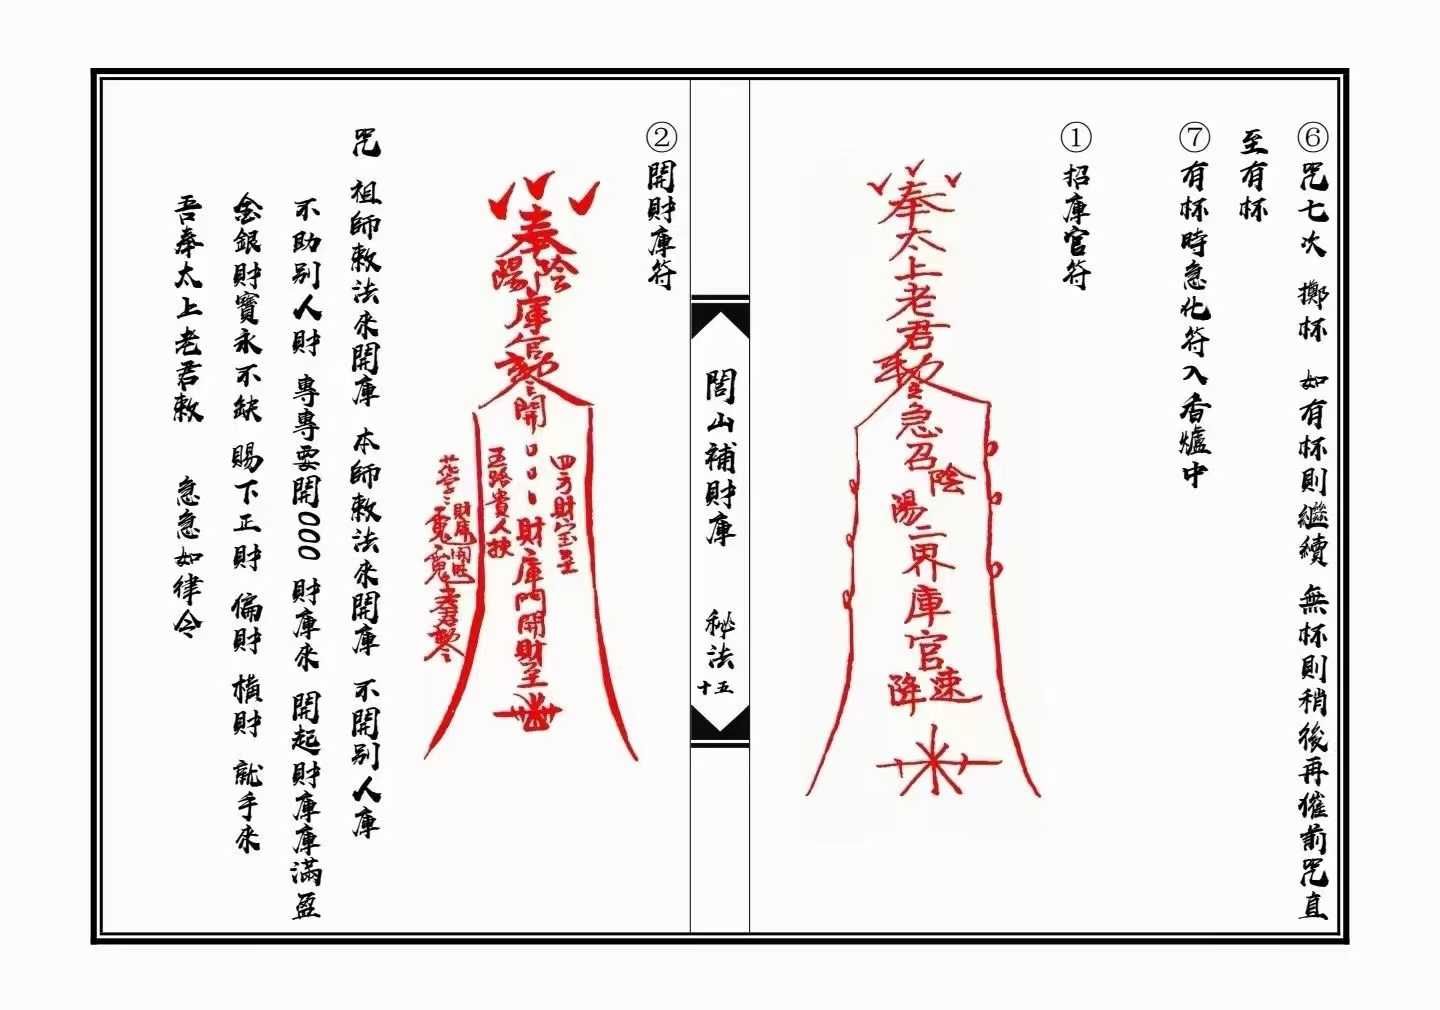 ⑥咒七次 擲杯 如有杯則繼續 無杯則稍後再催前咒直
至有杯
⑦有杯時急化符入香爐中
①招庫官符
奉太上老君敕令急召陰陽二界庫官速降
閭山補財庫 秘法
十五
②開財庫符
奉陰陽庫官敕令開ooo財庫門開財至
四方財宝至
五路貴人扶
咒 祖師敕法來開庫 本師敕法來開庫 不開別人庫
不助别人財 專專要開000 財庫來 開起財庫庫滿盈
金銀財寶永不缺 賜下正財 偏財 橫財 就手來
吾奉太上老君敕 急急如律令